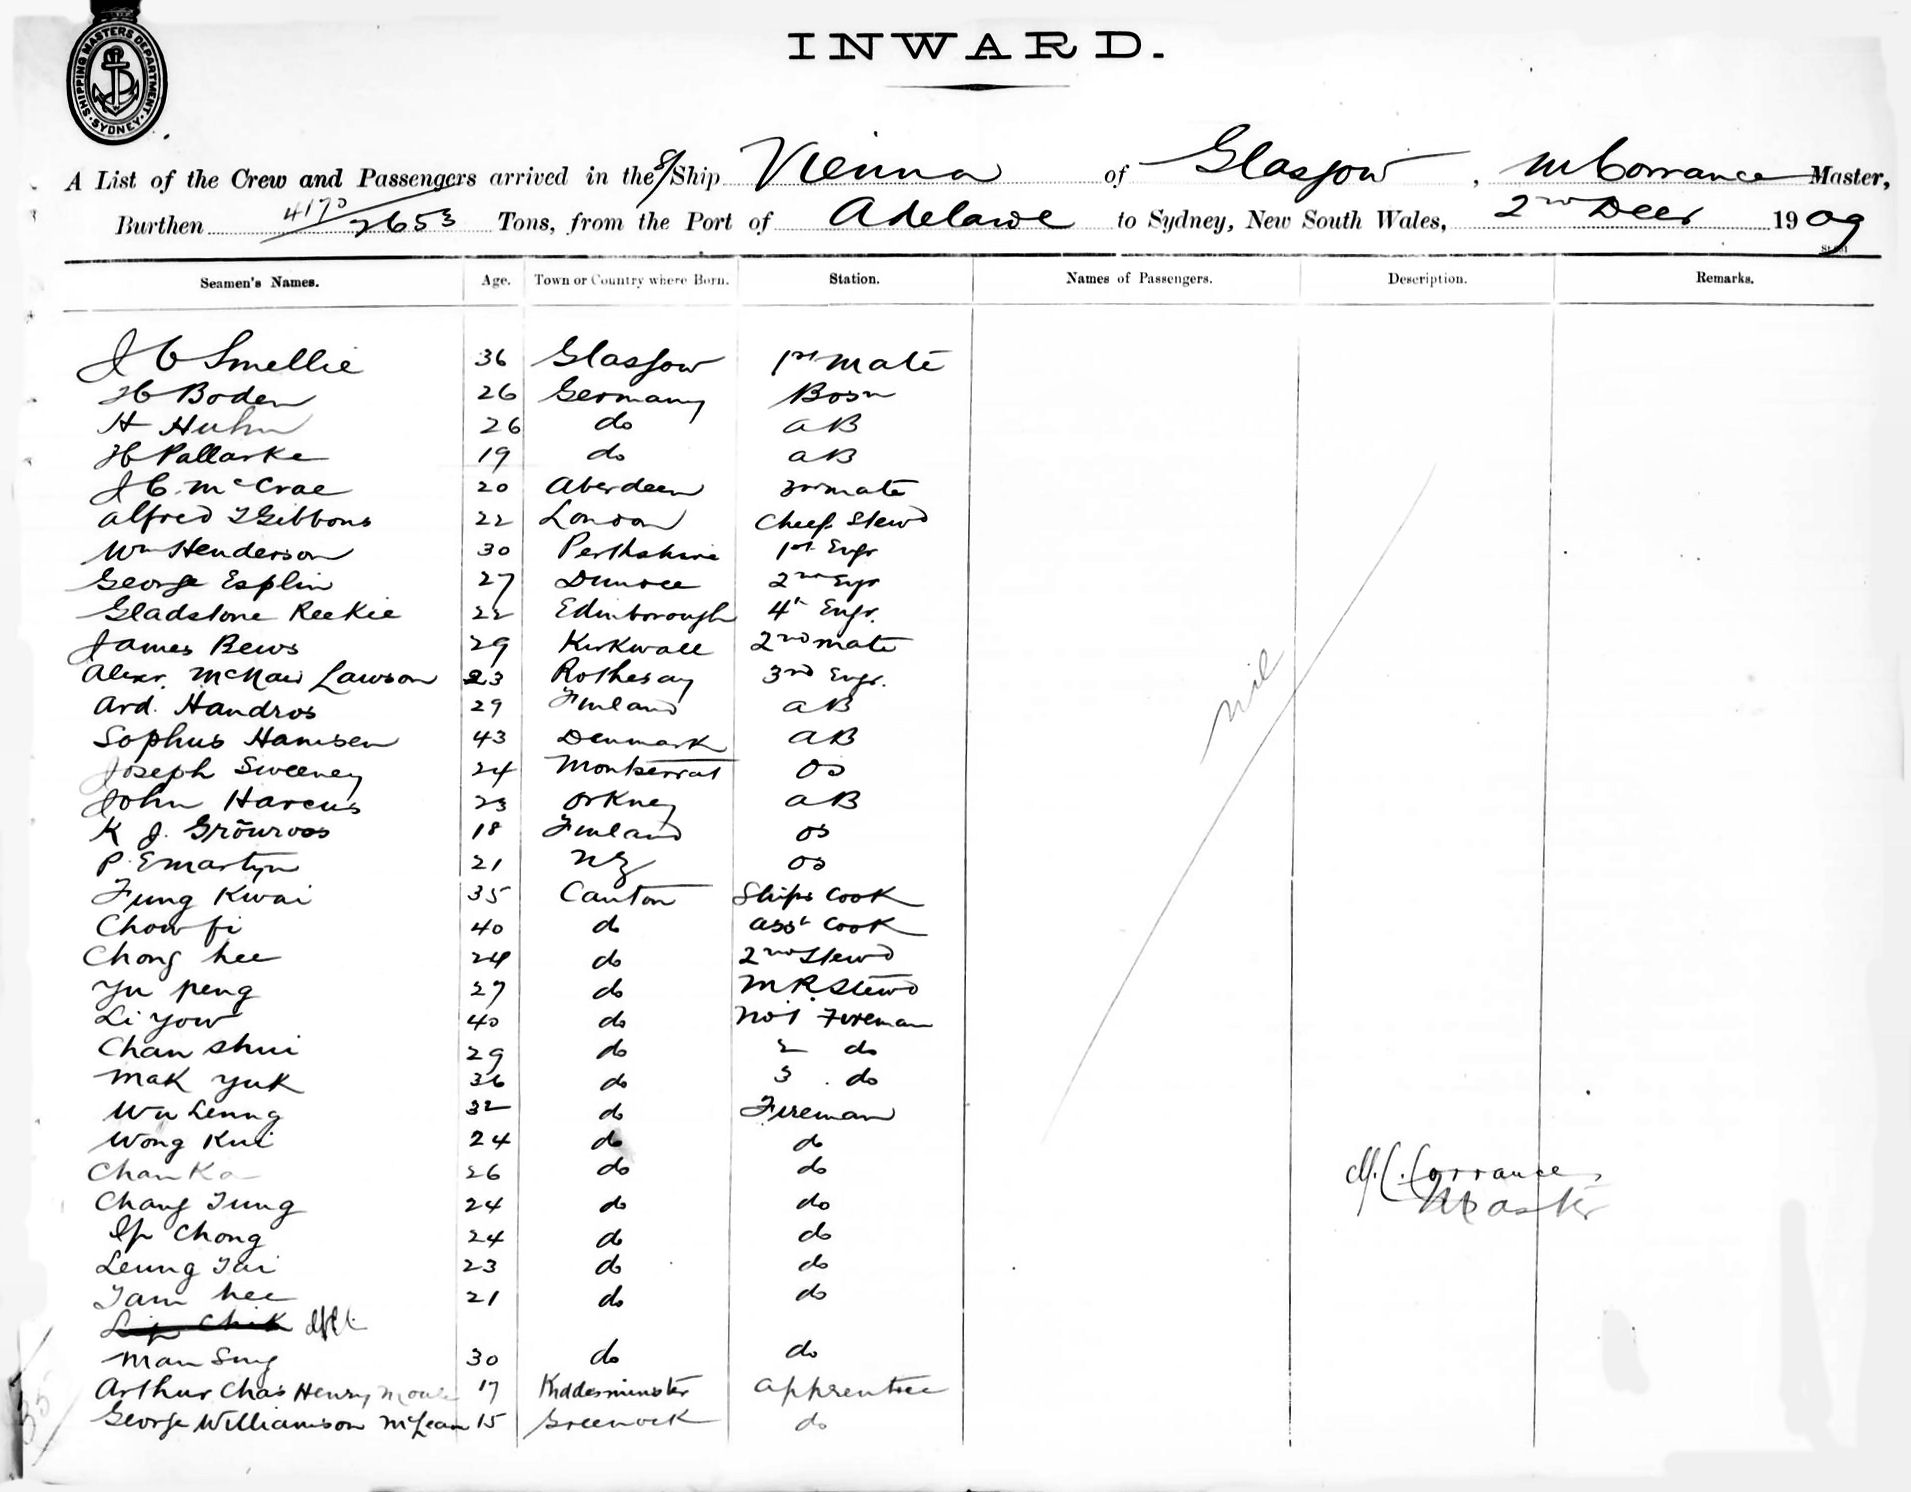 SHIPPING MASTERS DEPARTMENT · SYDNEY ·
INWARD.
A List of the Crew and Passengers arrived in the S/Ship Vienna of Glasgow, M Corrance Master,
Burthen 4170/2653 Tons, from the Port of Adelaide to Sydney, New South Wales, 2nd Decr 1909
Seamen's Names. Age. Town or Country where Born. Station. Names of Passengers. Description. Remarks.
J C Smellie 36 Glasgow 1st mate
H Boden 26 Germany Bosn
H Huhn 26 do AB
H Pallarke 19 do AB
J C. McCrae 20 Aberdeen 3rd mate
Alfred J Gibbons 22 London Cheef Stewd
Wm Henderson 30 Perthshire 1st Engr
George Esplin 27 Dundee 2nd Engr
Gladstone Reekie 22 Edinborough 4th Engr.
James Bews 29 Kirkwall 2nd mate
Alexr. McNair Lawson 23 Rothesay 3rd Engr.
Ard. Handros 29 Finland AB
Sophus Hansen 43 Denmark AB
Joseph Sweeney 24 Montserrat OS
John Harcus 23 Orkney AB
K J. Grönroos 18 Finland OS
P. E Martyn 21 NZ OS
Fung Kwai 35 Canton Ships Cook
Chow fi 40 do Asst Cook
Chong hee 24 do 2nd Stewd
Yu peng 27 do M.R. Stewd
Li Yow 40 do No 1 Fireman
Chan Shui 29 do 2 do
Mak Yuk 36 do 3 do
Wu Leung 32 do Fireman
Wong Kui 24 do do
Chan Ka 26 do do
Chang Tung 24 do do
Ip Chong 24 do do
Leung Tai 23 do do
Tam hee 21 do do
Lip Chik
Man Sing 30 do do
Arthur Chas Henry 17 Kidderminster Apprentice
George Williamson McLean 15 Greenock do
nil
M. C. Corrance
Master
35